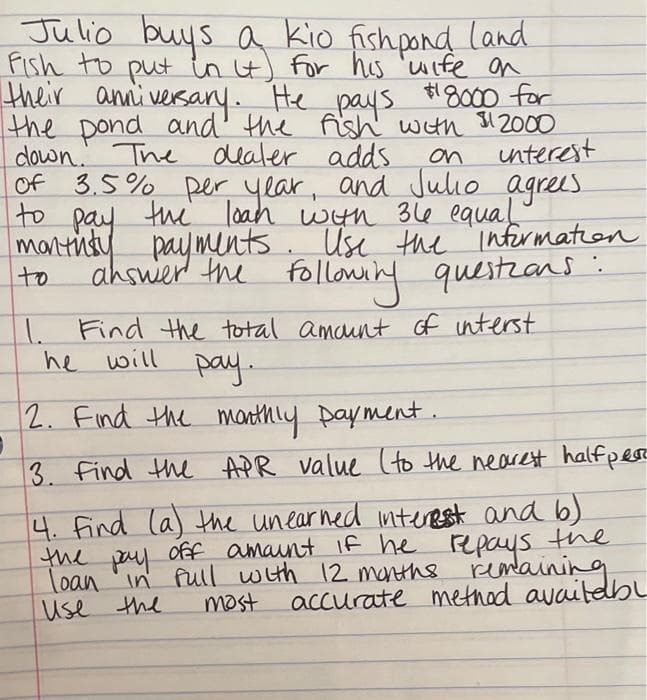 Julio buys a kio fishpond (and
Fish to put in it) for his wife on
their anniversary. He pays $18000 for
the pond and the fish with $12000
down. The dealer adds on interest
of 3.5% per year, and Julio agrees
to pay the loan with 36 equal
monthly payments. Use the Information
to answer the following questions:
1. Find the total amount of interst
he will pay.
2. Find the monthly payment.
3. Find the APR value (to the nearest half per
4. Find (a) the unearned interest and b)
the pay off amount if he repays the
loan in full with 12 months remaining
Use the most accurate method availabl